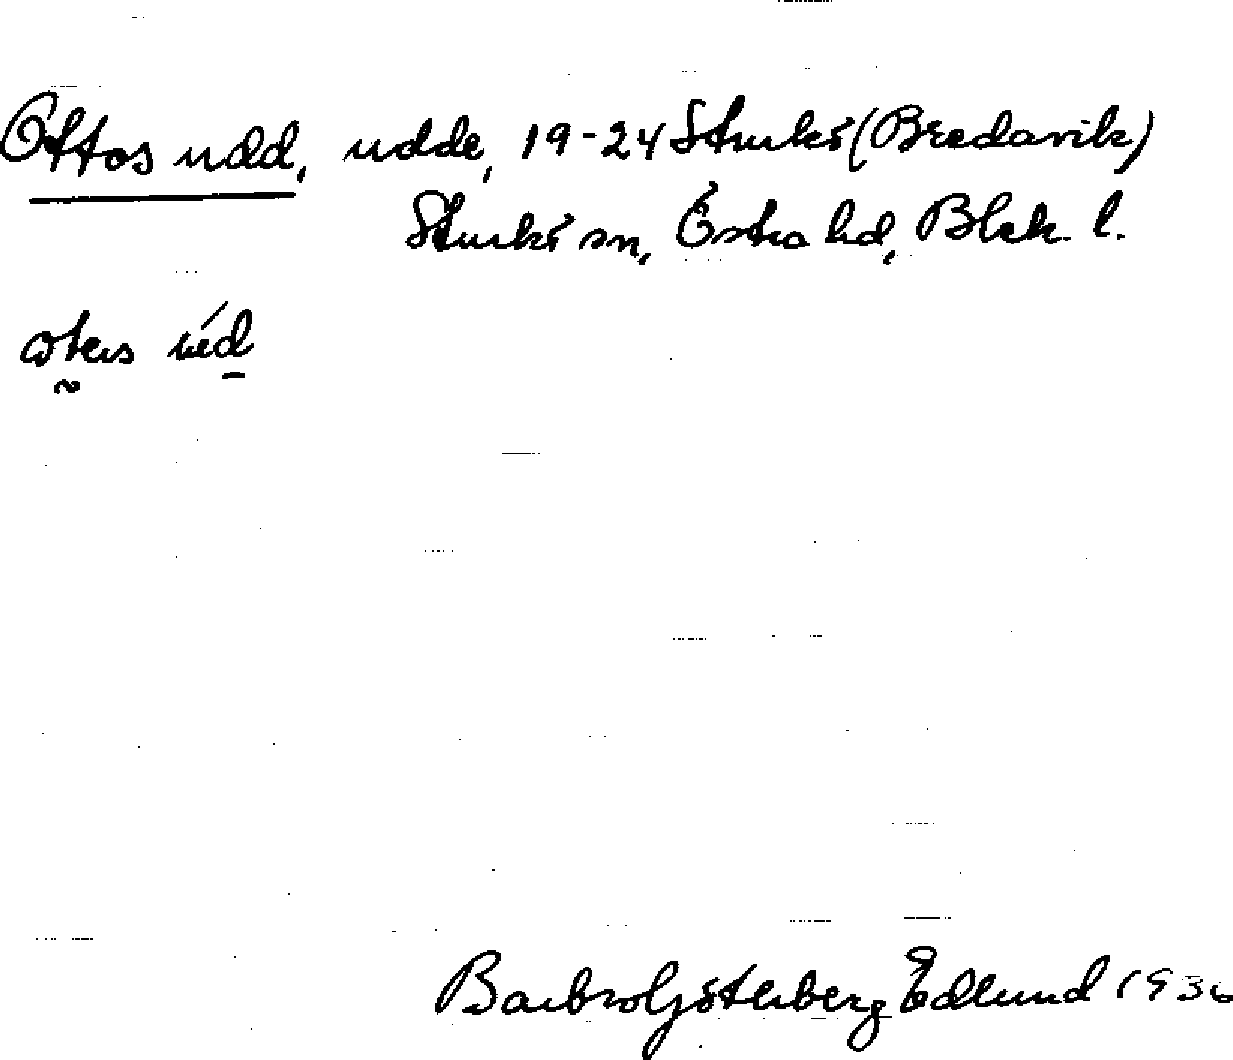 Ottos udd, udde, 19-24 Sturkö (Bredavik)
Sturkö sn, Östra hd, Blek. l.
udd
Barbro Edlund 1936